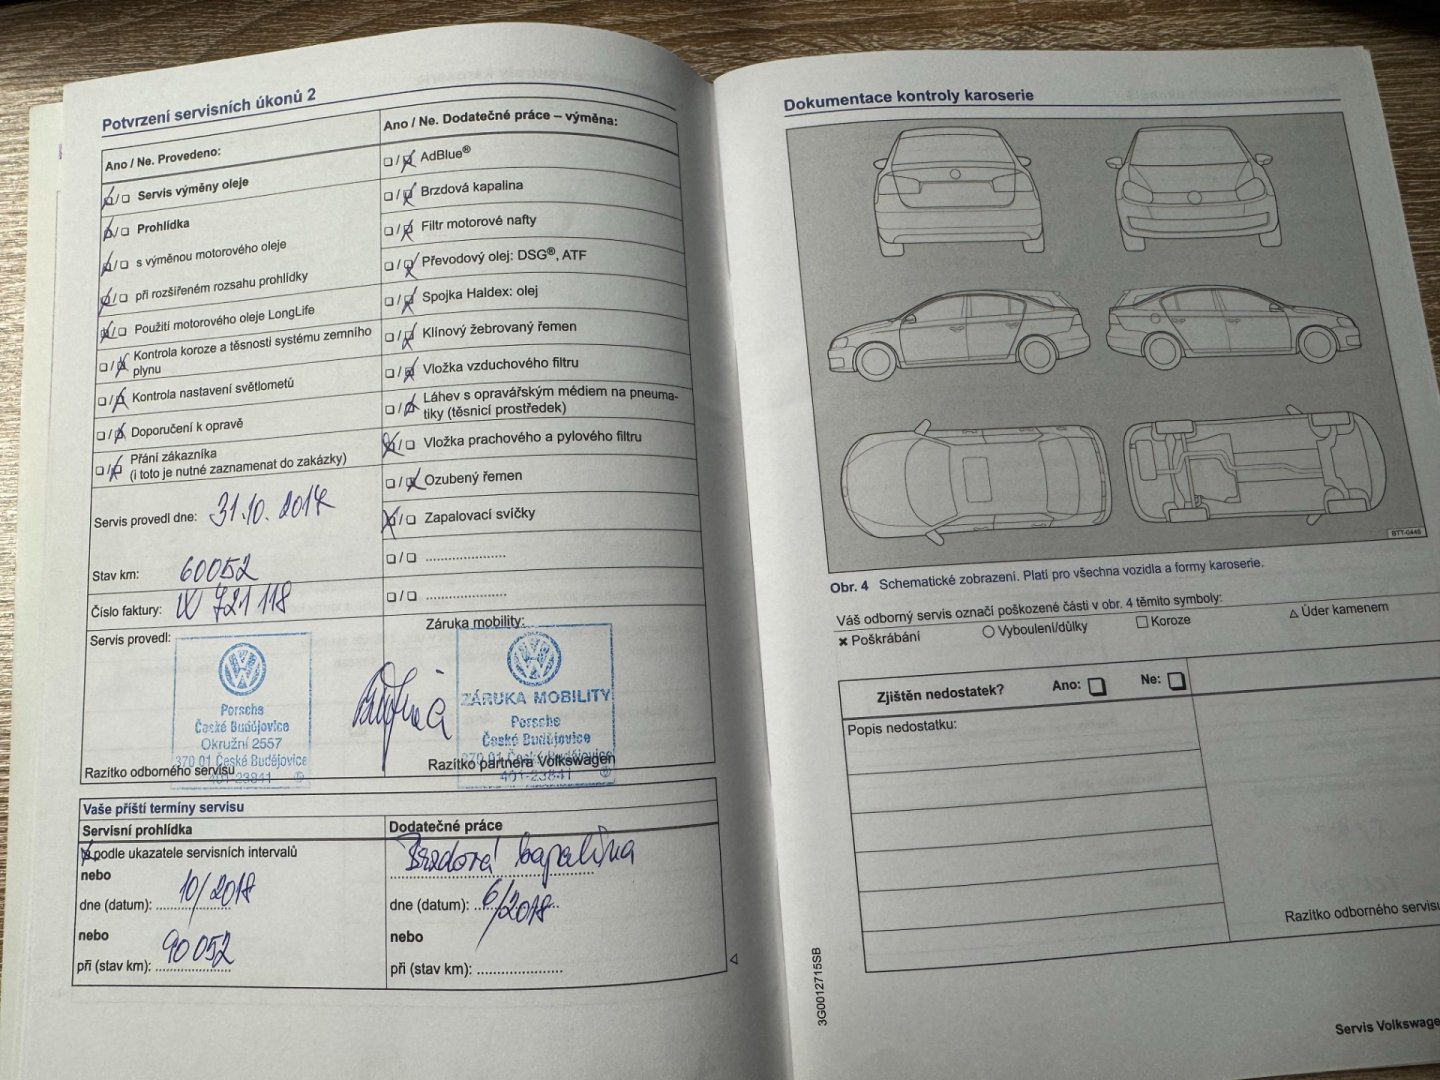 Potvrzení servisních úkonů 2
Ano / Ne. Provedeno:
Servis výměny oleje
Prohlídka
s výměnou motorového oleje
při rozšířeném rozsahu prohlídky
Použití motorového oleje LongLife
Kontrola koroze a těsnosti systému zemního
plynu
Kontrola nastavení světlometů
Doporučení k opravě
Přání zákazníka
(i toto je nutné zaznamenat do zakázky)
Servis provedl dne: 31.10. 2017
Stav km: 60052
Číslo faktury: W 721 118
Servis provedl:
Porsche
České Budějovice
Okružní 2557
370 01 České Budějovice
401-23841
Razítko odborného servisu
Ano / Ne. Dodatečné práce – výměna:
AdBlue®
Brzdová kapalina
Filtr motorové nafty
Převodový olej: DSG®, ATF
Spojka Haldex: olej
Klínový žebrovaný řemen
Vložka vzduchového filtru
Láhev s opravářským médiem na pneuma-
tiky (těsnicí prostředek)
Vložka prachového a pylového filtru
Ozubený řemen
Zapalovací svíčky
Záruka mobility:
ZÁRUKA MOBILITY
Porsche
České Budějovice
370 01 České Budějovice
401-23841
Razítko partnera Volkswagen
Vaše příští termíny servisu
Servisní prohlídka
podle ukazatele servisních intervalů
nebo
dne (datum): 10/2018
nebo
při (stav km): 90052
Dodatečné práce
Brzdová kapalina
dne (datum): 6/2018
nebo
při (stav km):
Dokumentace kontroly karoserie
BTT-0448
Obr. 4 Schematické zobrazení. Platí pro všechna vozidla a formy karoserie.
Váš odborný servis označí poškozené části v obr. 4 těmito symboly:
✖ Poškrábání ○ Vyboulení/důlky □ Koroze △ Úder kamenem
Zjištěn nedostatek? Ano: Ne:
Popis nedostatku:
Razítko odborného servisu
3G0012715SB
Servis Volkswage